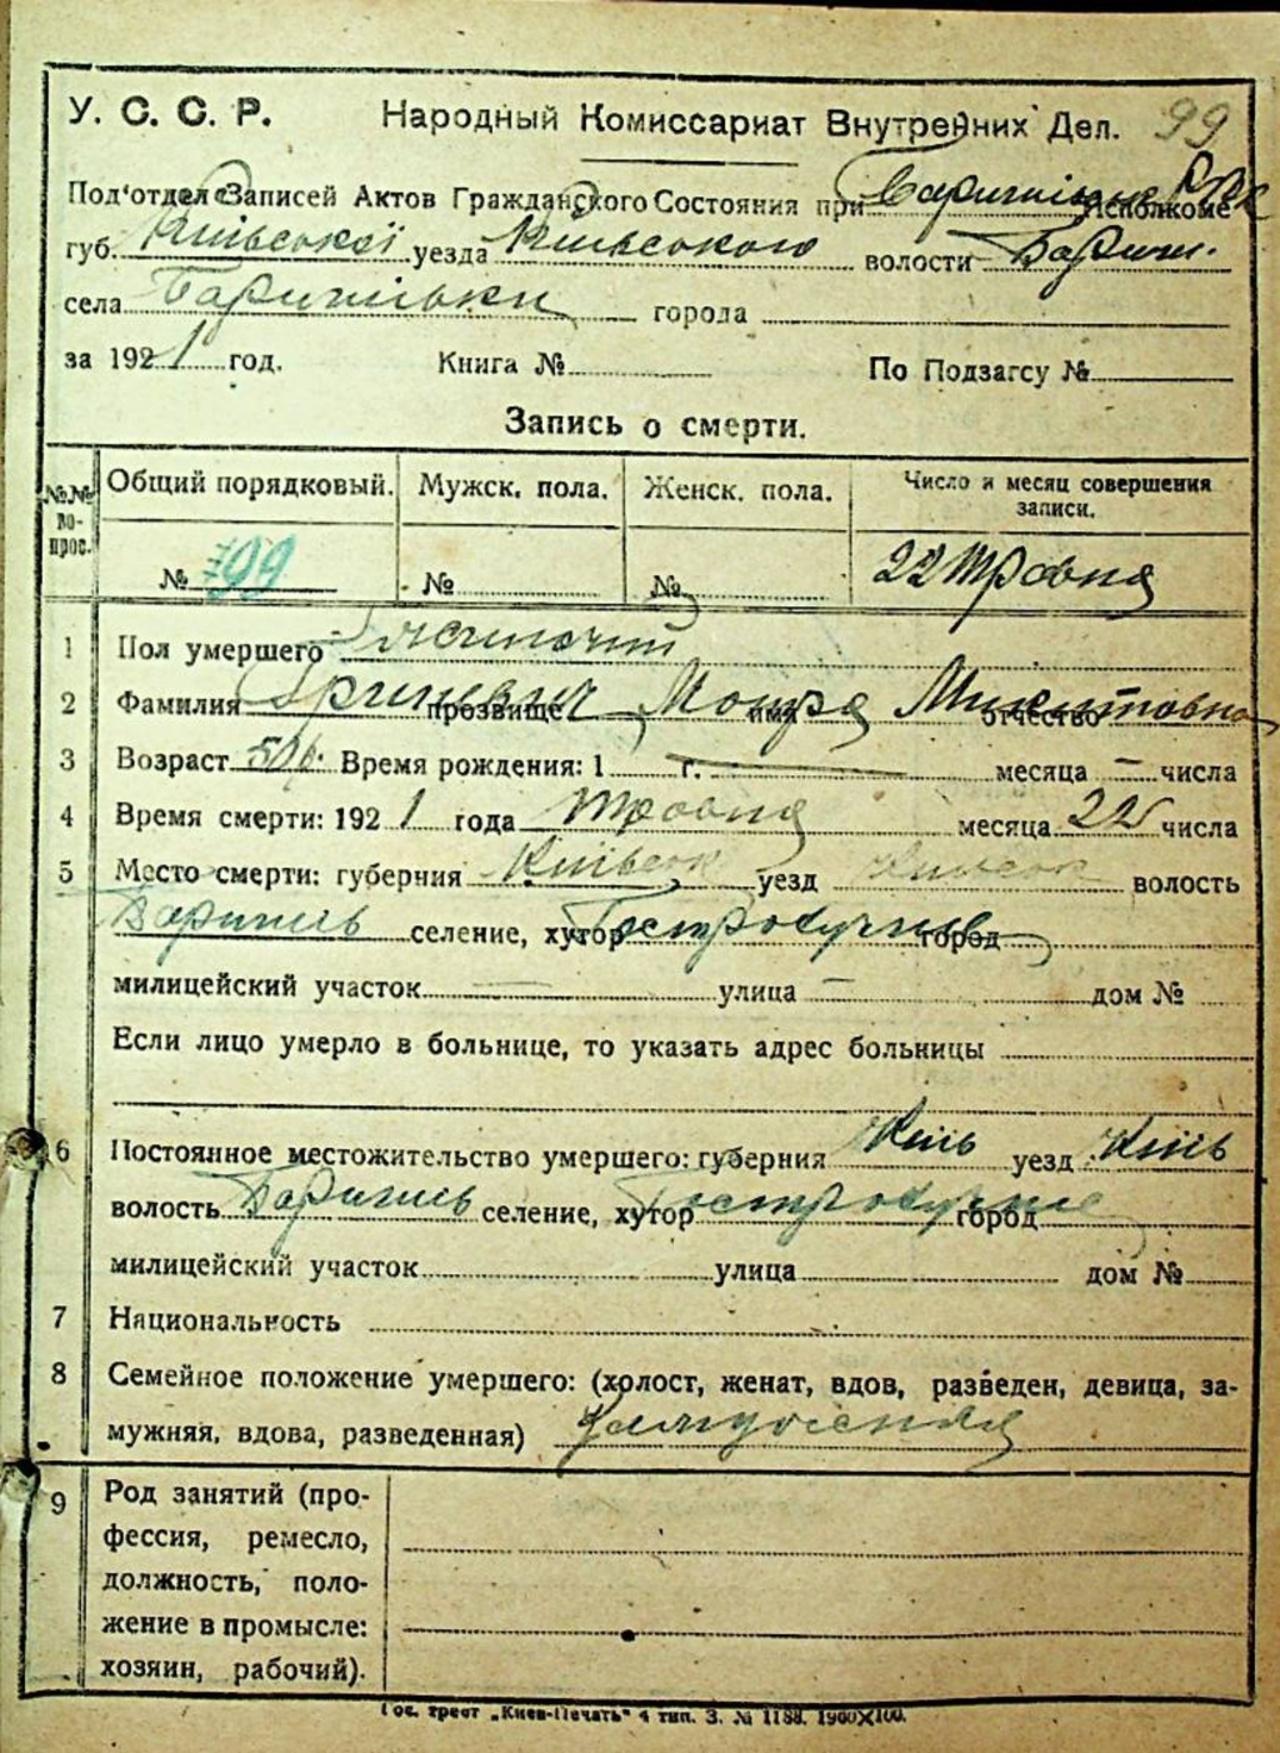 У. С. С. Р. Народный Комиссариат Внутренних Дел. 99
Под'отдел Записей Актов Гражданского Состояния при Исполкоме
губ. Київської уезда Київського волости Бариш.
села Баришівки города
за 1921 год. Книга № По Подзагсу №
Запись о смерти.
№№ во-прос. Общий порядковый. Мужск. пола. Женск. пола. Число и месяц совершения записи.
№ 99 № № 22 травня
1 Пол умершего жиночий
2 Фамилия Гриневич прозвище имя Микитовна отчество
3 Возраст Время рождения: 1 г. — месяца — числа
4 Время смерти: 1921 года травня месяца 22 числа
5 Место смерти: губерния Київськ уезд Київськ волость
Баришів селение, хутор город
милицейский участок — улица — дом №
Если лицо умерло в больнице, то указать адрес больницы
6 Постоянное местожительство умершего: губерния Київ уезд Київ
волость Баришів селение, хутор город
милицейский участок улица дом №
7 Национальность
8 Семейное положение умершего: (холост, женат, вдов, разведен, девица, за-
мужняя, вдова, разведенная)
9 Род занятий (про-
фессия, ремесло,
должность, поло-
жение в промысле:
хозяин, рабочий).
Гос. трест „Киев-Печать" 4 тип. З. № 1188. 1900X100.